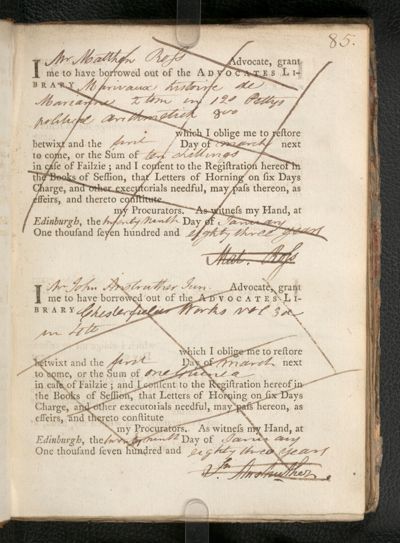 85.
I Mr Matthew Ross Advocate, grant
me to have borrowed out of the ADVOCATES LI-
BRARY Marivaux histoire de
Marianne tom in 12o Pettys
political arithmetick 8vo
which I oblige me to reſtore
betwixt and the first Day of march next
to come, or the Sum of ten shillings
in caſe of Failzie ; and I conſent to the Regiſtration hereof in
the Books of Seſſion, that Letters of Horning on ſix Days
Charge, and other executorials needful, may paſs thereon, as
effeirs, and thereto conſtitute
my Procurators. As witneſs my Hand, at
Edinburgh, the twenty ninth Day of January
One thouſand ſeven hundred and eighty three years
Mat. Ross
I Mr John Anstruther Jun. Advocate, grant
me to have borrowed out of the ADVOCATES LI-
BRARY Chesterfields Works vol 3d
in 4to
which I oblige me to reſtore
betwixt and the first Day of march next
to come, or the Sum of one Guinea
in caſe of Failzie ; and I conſent to the Regiſtration hereof in
the Books of Seſſion, that Letters of Horning on ſix Days
Charge, and other executorials needful, may paſs hereon, as
effeirs, and thereto conſtitute
my Procurators. As witneſs my Hand, at
Edinburgh, the twenty ninth Day of January
One thouſand ſeven hundred and eighty three years
Jn Anstruther